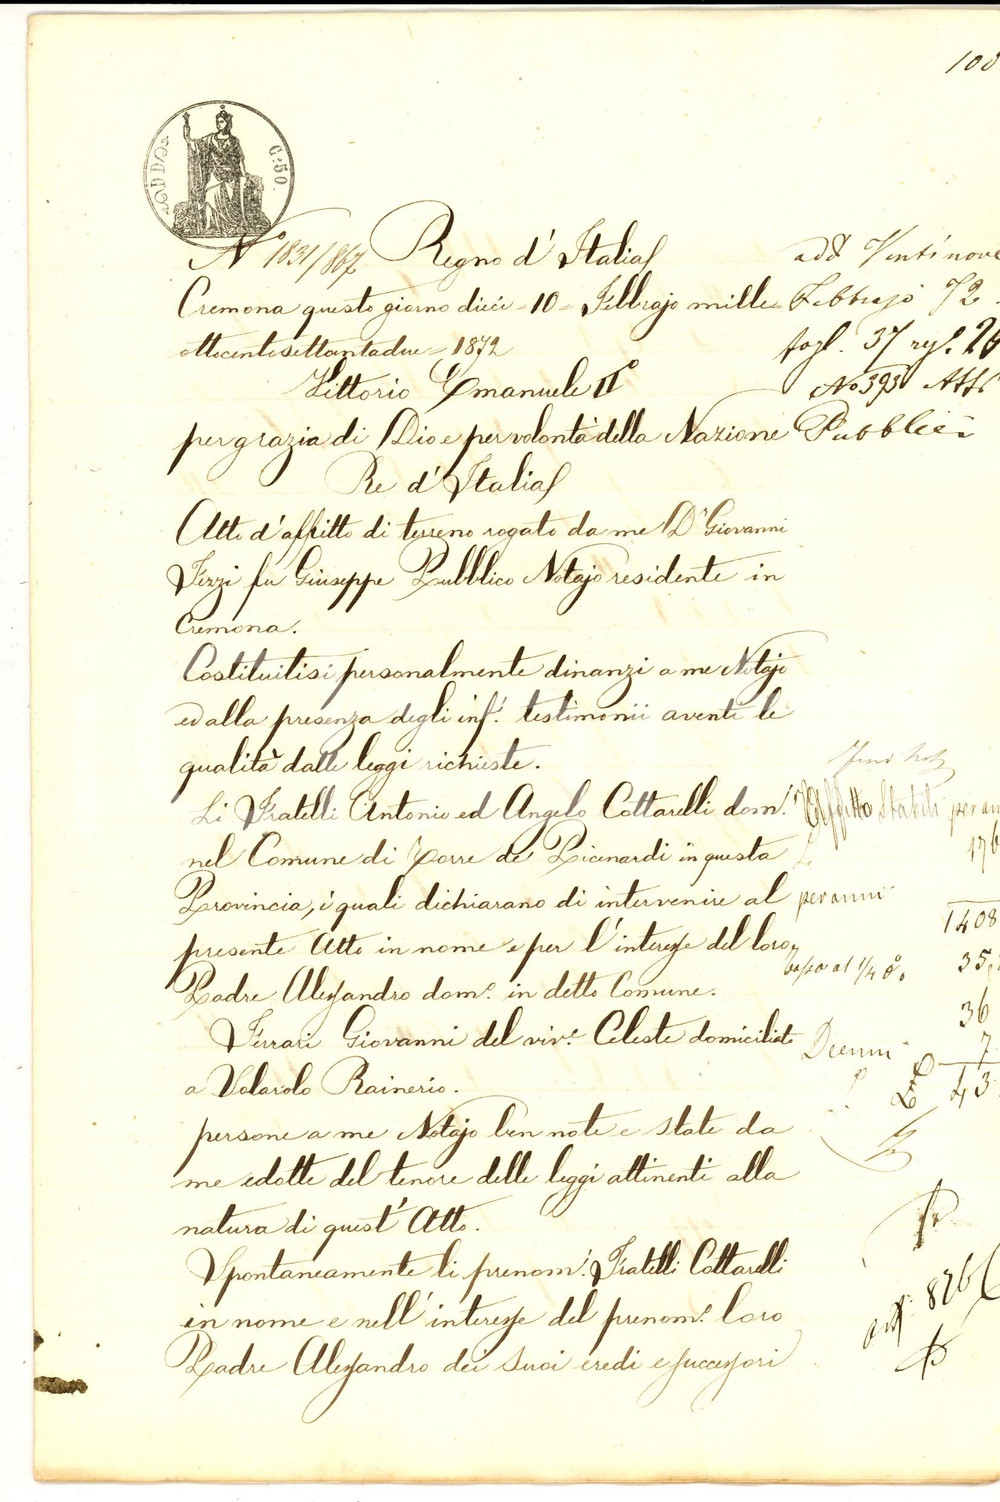 108
C. 50.
N° 1831/867 Regno d'Italia
Cremona questo giorno dieci = 10 = Febbrajo mille
ottocentosettantadue = 1872
Vittorio Emanuele II°
per grazia di Dio e per volontà della Nazione
Re d'Italia
Atto d'affitto di terreno rogato da me D.r Giovanni
Fezzi fu Giuseppe Pubblico Notajo residente in
Cremona.
Costituitisi personalmente dinanzi a me Notajo
ed alla presenza degli inf.i testimonii aventi le
qualità dalle leggi richieste.
Li Fratelli Antonio ed Angelo Cottarelli dom.i
nel Comune di Torre de' Picenardi in questa
Provincia, i quali dichiarano di intervenire al
presente Atto in nome e per l'interesse del loro
Padre Alessandro dom.o in detto Comune.
Ferrari Giovanni del viv.e Celeste domiciliato
a Volarolo Rainerio.
persone a me Notajo ben note e state da
me edotte del tenore delle leggi attinenti alla
natura di quest'Atto.
Spontaneamente li prenom.i Fratelli Cottarelli
in nome e nell'interesse del prenom.o loro
Padre Alessandro dei suoi eredi e successori
add Ventinove
Febbrajo 72
fogl. 37 reg. 26
No 393 Atti
Pubblici
Affitto Stabili per an
176
per anni
1408
tassa al 1/4 %
35,
36
Decimi
7
43